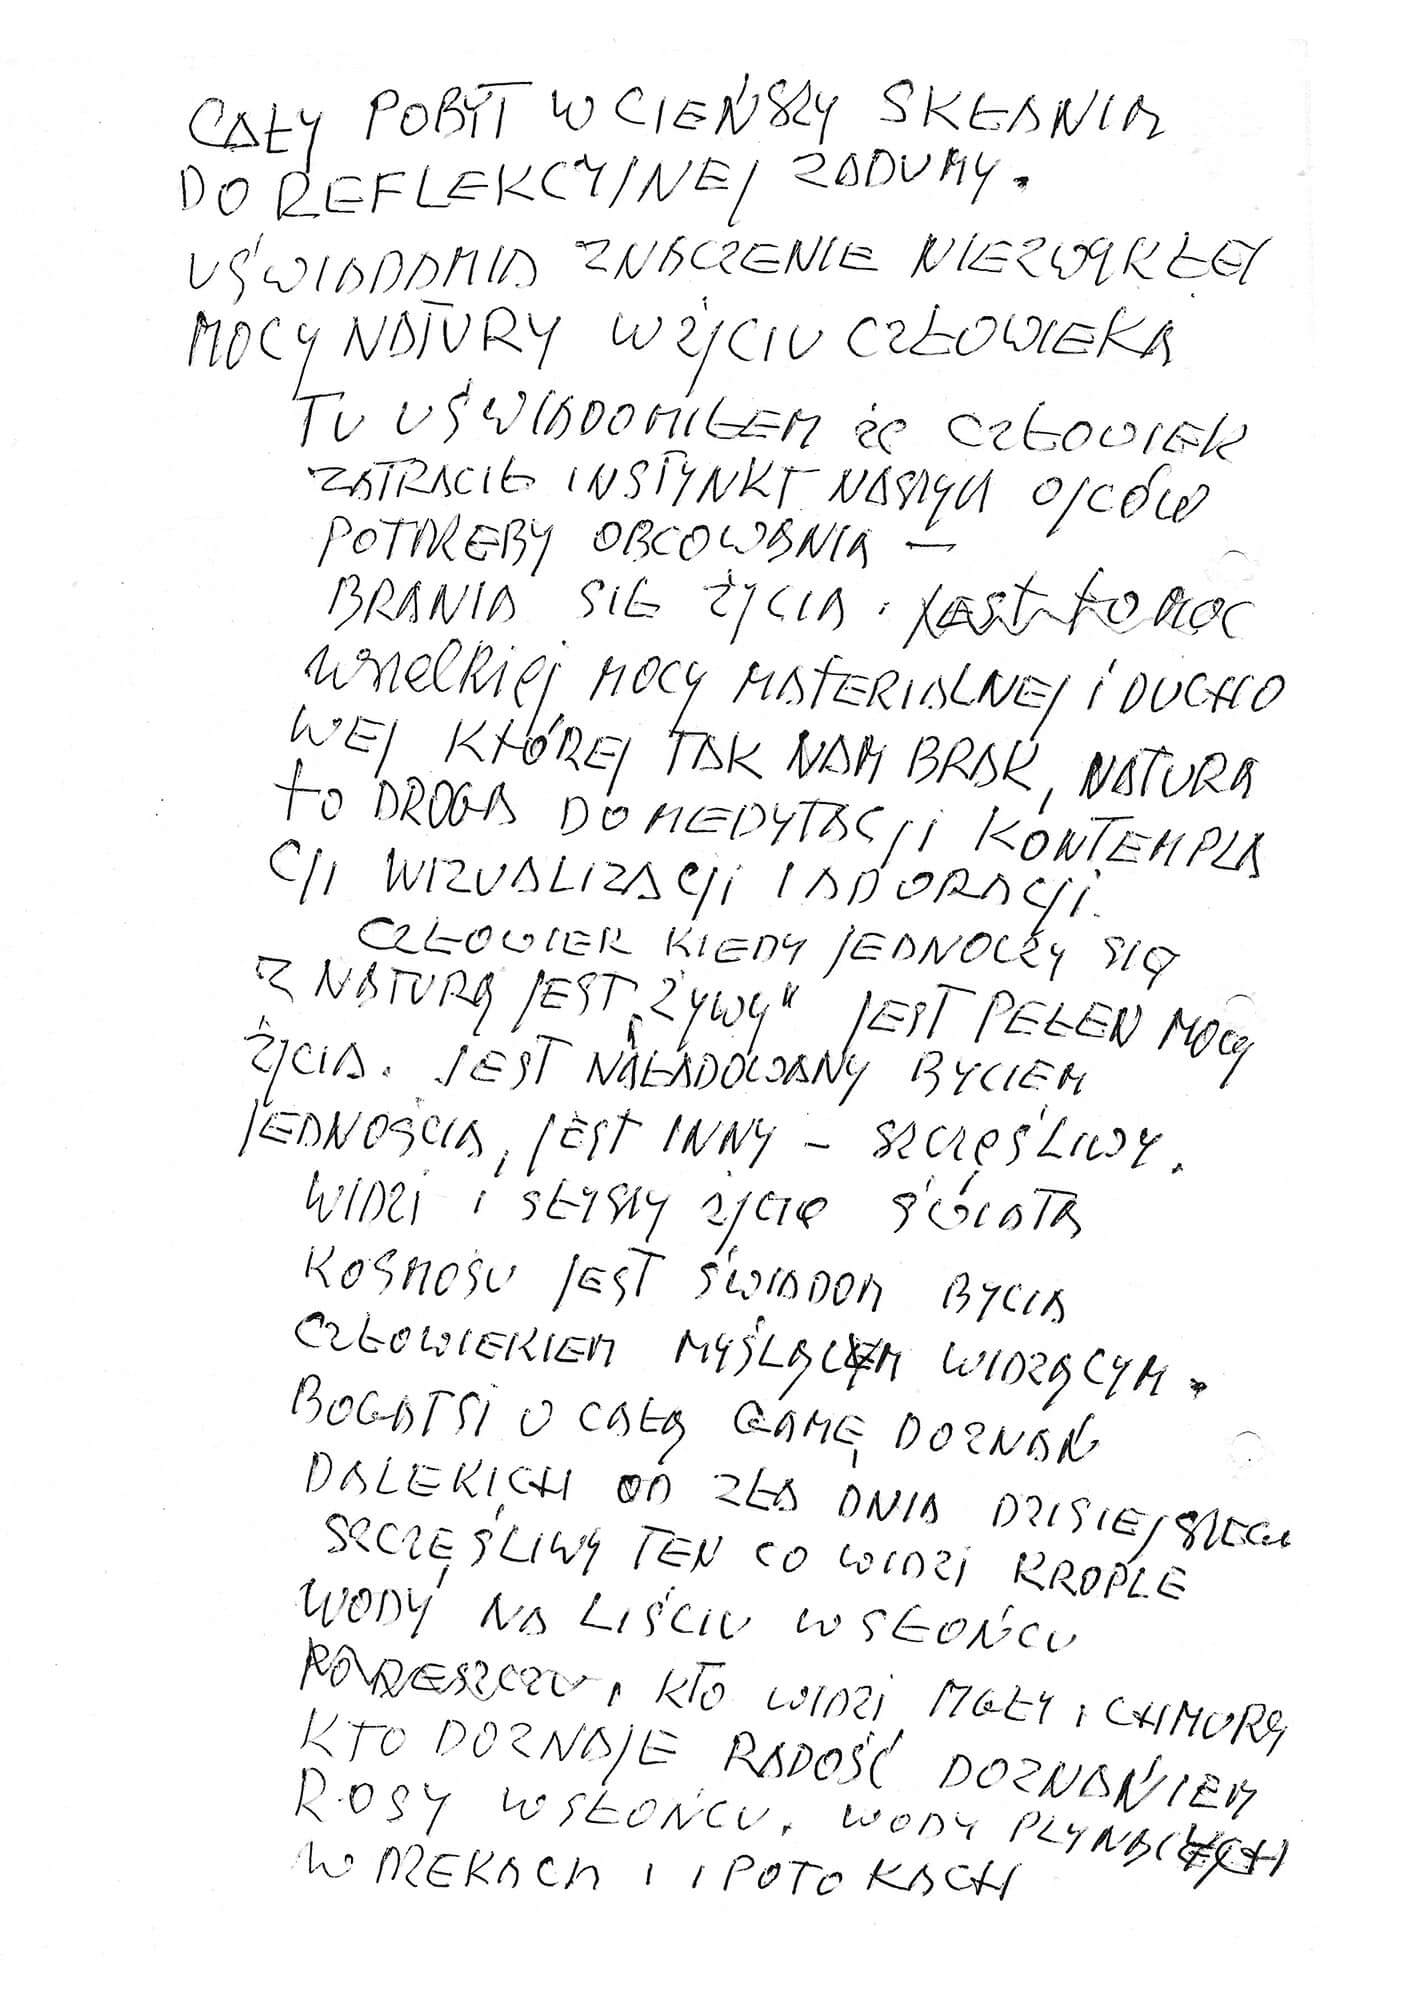 CAŁY POBYT W CIEŃSZY SKŁANIA
DO REFLEKCYJNEJ ZADUMY.
UŚWIADAMIA ZNACZENIE NIEZWYKŁEJ
MOCY NATURY W ŻYCIU CZŁOWIEKA
TU UŚWIADOMIŁEM że CZŁOWIEK
ZATRACIŁ INSTYNKT NASZYCH OJCÓW
POTRZEBY OBCOWANIA –
BRANIA SIŁ ŻYCIA. JEST to MOC
wszelkiej MOCY MATERIALNEJ i DUCHO
WEJ KTÓREJ TAK NAM BRAK, NATURA
to DROGA DO MEDYTACJI KONTEMPLA
CJI WIZUALIZACJI I ADORACJI.
CZŁOWIEK KIEDY JEDNOCZY SIĘ
Z NATURĄ JEST „ŻYWY" JEST PEŁEN MOCY
ŻYCIA. JEST NAŁADOWANY BYCIEM
JEDNOŚCIA, JEST INNY – SZCZĘŚLIWY.
WIDZI i SŁYSZY życie ŚWIATA
KOSMOSU JEST ŚWIADOM BYCIA
CZŁOWIEKIEM MYŚLĄCYM WIDZĄCYM.
BOGATSI O CAŁĄ GAMĘ DOZNAŃ
DALEKICH OD ZŁA DNIA DZISIEJSZEGO
SZCZĘŚLIWY TEN CO WIDZI KROPLE
WODY NA LIŚCIU W SŁOŃCU
PO DESZCZU, KTO WIDZI MGŁY i CHMURĄ
KTO DOZNAJE RADOŚĆ DOZNANIEM
ROSY W SŁOŃCU. WODY PŁYNĄCYCH
W RZEKACH I I POTOKACH